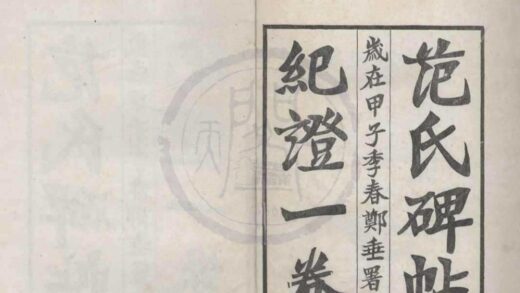 范氏碑帖
歲在甲子季春鄭垂署
紀證一卷